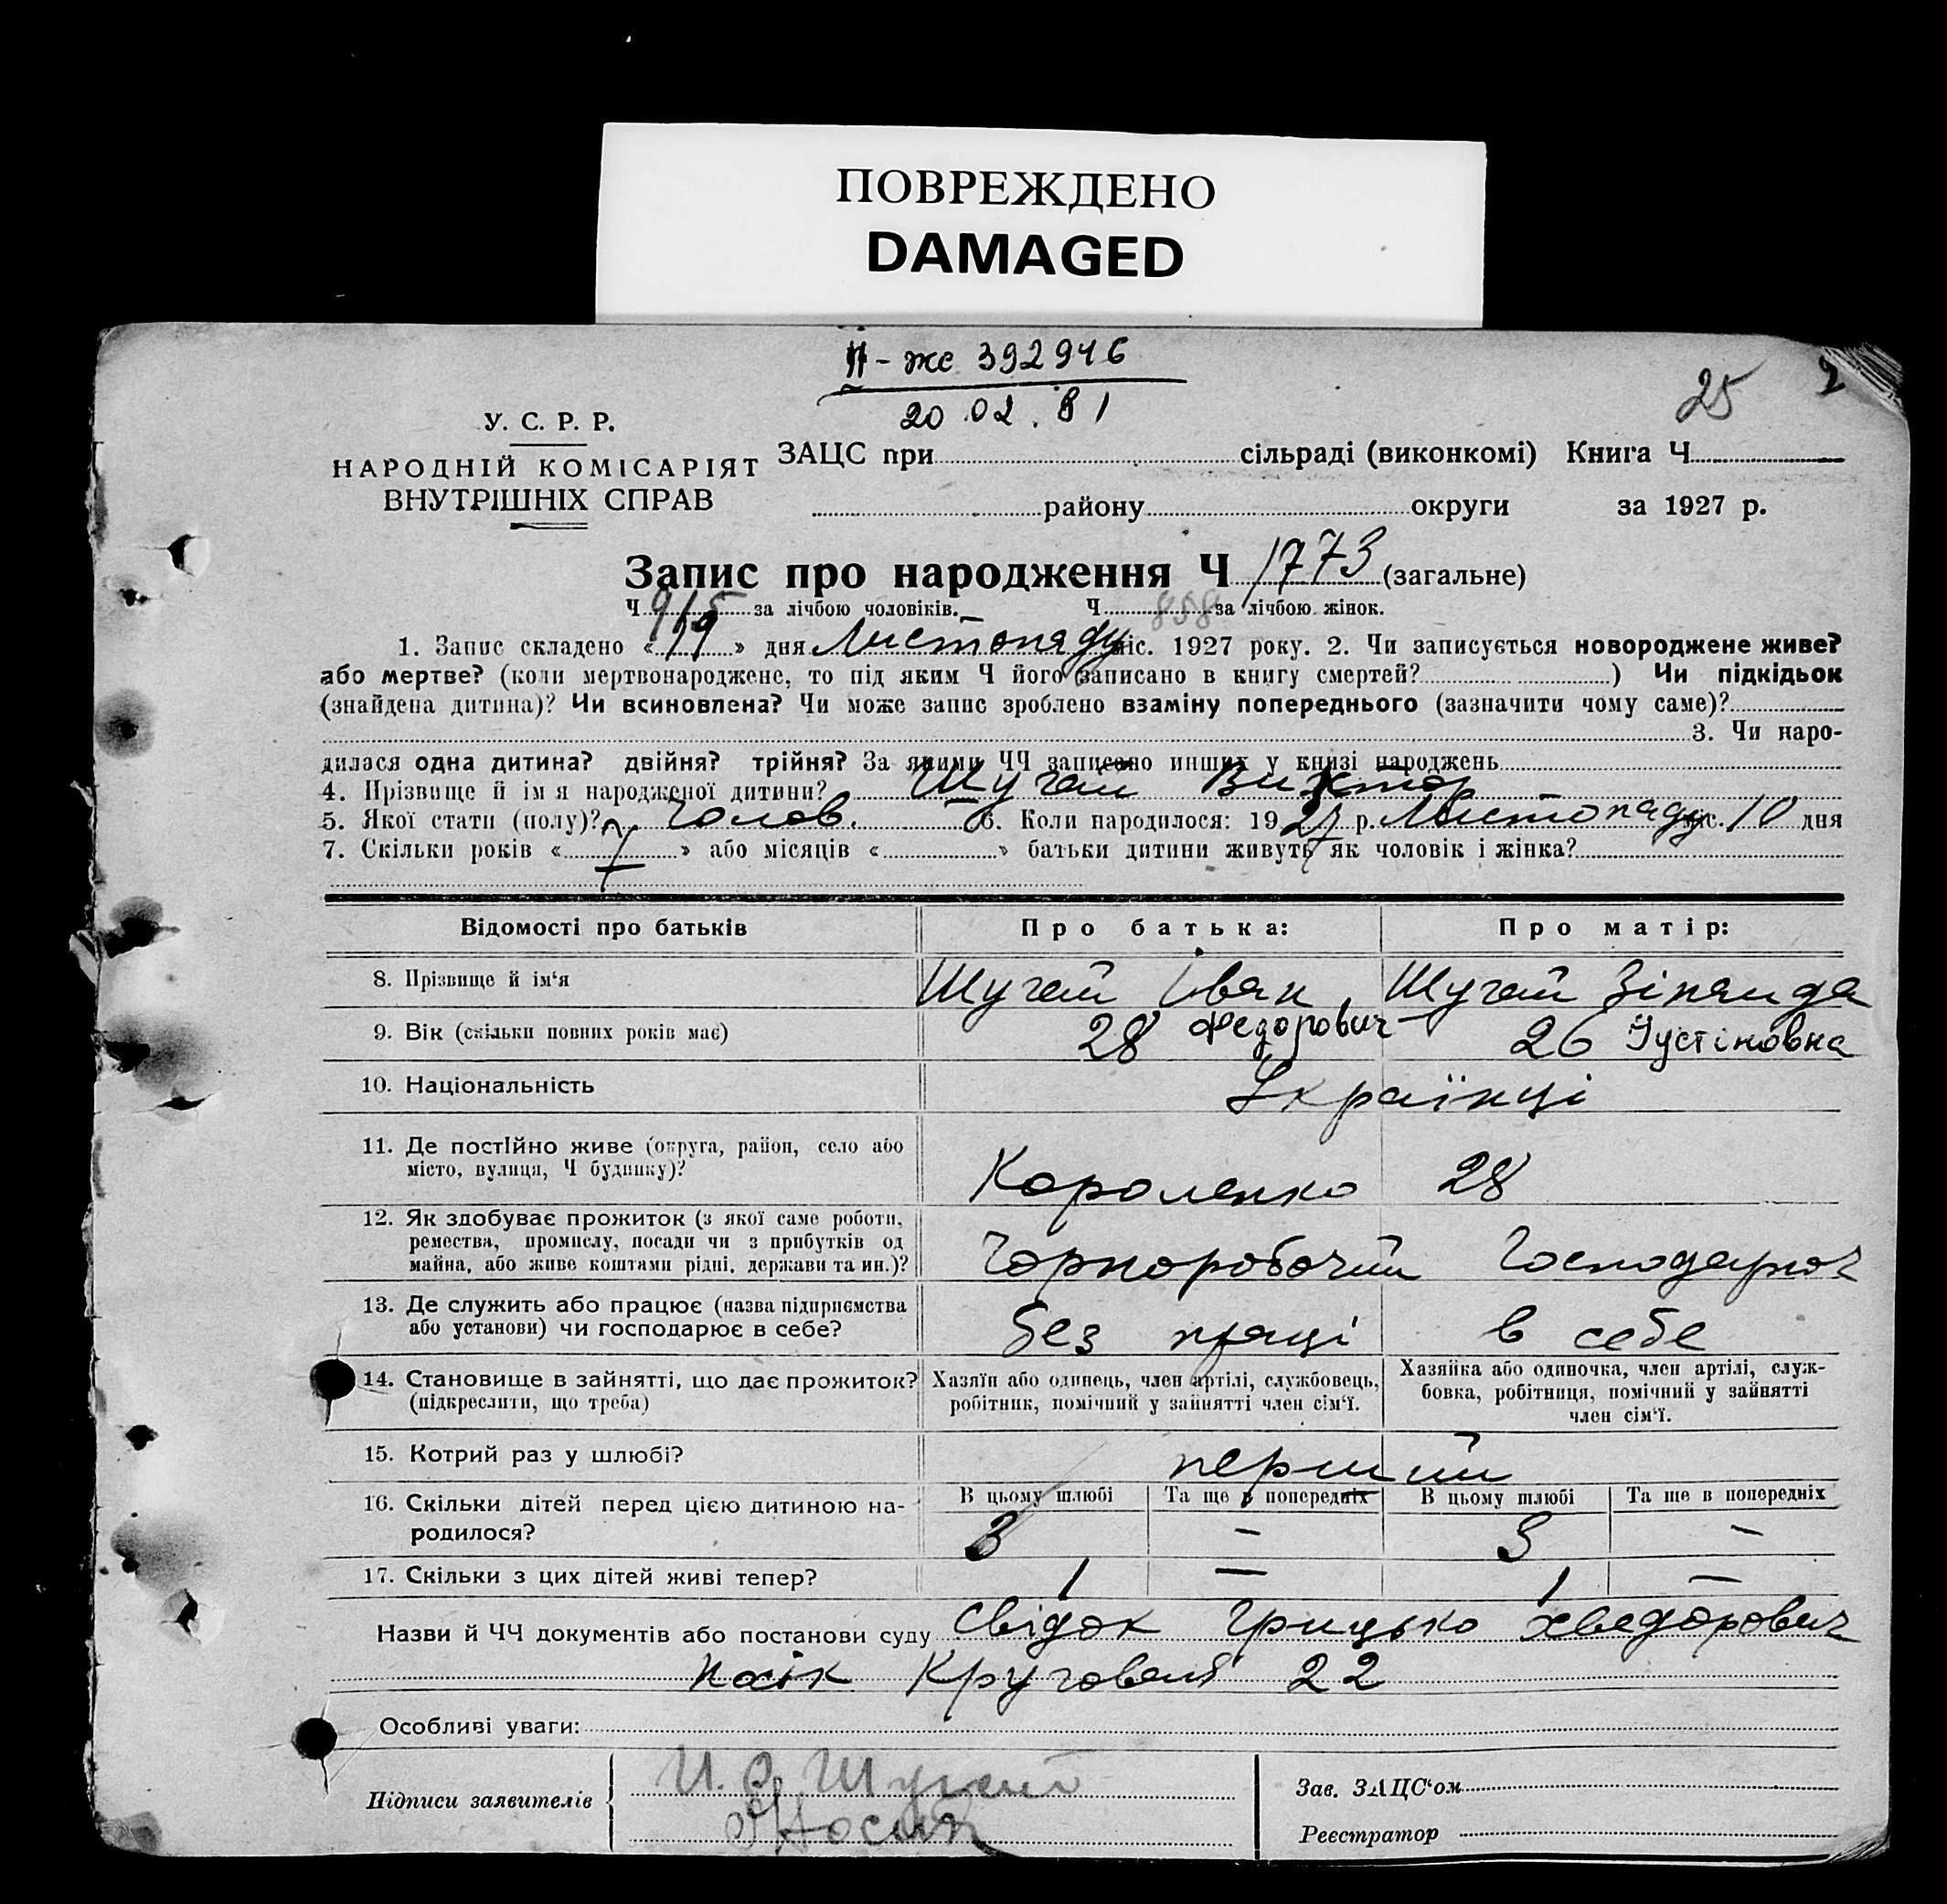 ПОВРЕЖДЕНО
DAMAGED
II - жс 392946
20 02. 81
25 2
У. С. Р. Р.
НАРОДНІЙ КОМІСАРІЯТ
ВНУТРІШНІХ СПРАВ
ЗАЦС при сільраді (виконкомі) Книга Ч
району округи за 1927 р.
Запис про народження Ч 1773 (загальне)
Ч 915 за лічбою чоловіків. Ч 858 за лічбою жінок.
1. Запис складено « 19 » дня Листопаду міс. 1927 року. 2. Чи записується новороджене живе?
або мертве? (коли мертвонароджене, то під яким Ч його записано в книгу смертей? ) Чи підкідьок
(знайдена дитина)? Чи всиновлена? Чи може запис зроблено взаміну попереднього (зазначити чому саме)?
3. Чи наро-
дилася одна дитина? двійня? трійня? За якими ЧЧ записано инших у книзі народжень
4. Прізвище й ім я народженої дитини? Шугай Віктор
5. Якої стати (полу)? Чолов. 6. Коли народилося: 1927 р. Листопаду міс. 10 дня
7. Скільки років « 7 » або місяців « » батьки дитини живуть як чоловік і жінка?
Відомості про батьків Про батька: Про матір:
8. Прізвище й ім‘я Шугай Іван Шугай Зінаида
9. Вік (скільки повних років має) 28 Федорович 26 Устіновна
10. Національність Українці
11. Де постійно живе (округа, район, село або
місто, вулиця, Ч будинку)? Короленко 28
12. Як здобуває прожиток (з якої саме роботи,
ремества, промислу, посади чи з прибутків од
майна, або живе коштами рідні, держави та ин.)? Чорноробочий Господарює
13. Де служить або працює (назва підприємства
або установи) чи господарює в себе? без праці в себе
14. Становище в зайнятті, що дає прожиток?
(підкреслити, що треба)
Хазяїн або одинець, член артілі, службовець,
робітник, помічний у зайнятті член сім‘ї.
Хазяйка або одиночка, член артілі, служ-
бовка, робітниця, помічний у зайнятті
член сім‘ї.
15. Котрий раз у шлюбі? перший
16. Скільки дітей перед цією дитиною на-
родилося?
В цьому шлюбі Та ще в попередніх В цьому шлюбі Та ще в попередніх
3 – 3 –
17. Скільки з цих дітей живі тепер? 1 – 1 –
Назви й ЧЧ документів або постанови суду Свідок Грицько Хведорович
Носік Кругова 22
Особливі уваги:
Підписи заявителів
И. Ф. Шугай
Носик
Зав. ЗАЦС‘ом
Реєстратор